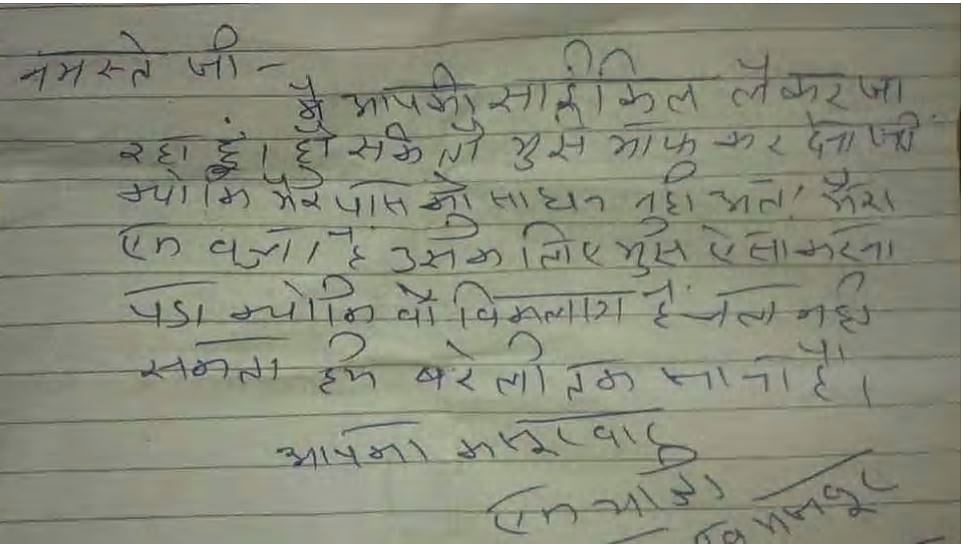 नमस्ते जी -
मै आपकी साईकिल लेकर जा
रहा हुं। हो सके तो मुझे माफ कर देना जी
क्योकि मेरे पास कोई साधन नही मेरा
एक बच्चा है उसके लिए मुझे ऐसा करना
पडा क्योकि वो विकलांग है चल नही
सकता हमे बरेली तक जाना है।
आपका कसूरवार
एक यात्री
मजबूर